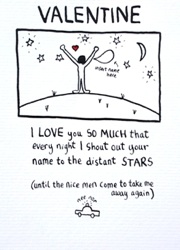 VALENTINE
insert name
here
I LOVE you SO MUCH that
every night I shout out your
name to the distant STARS
(until the nice men come to take me
away again)
nee nor